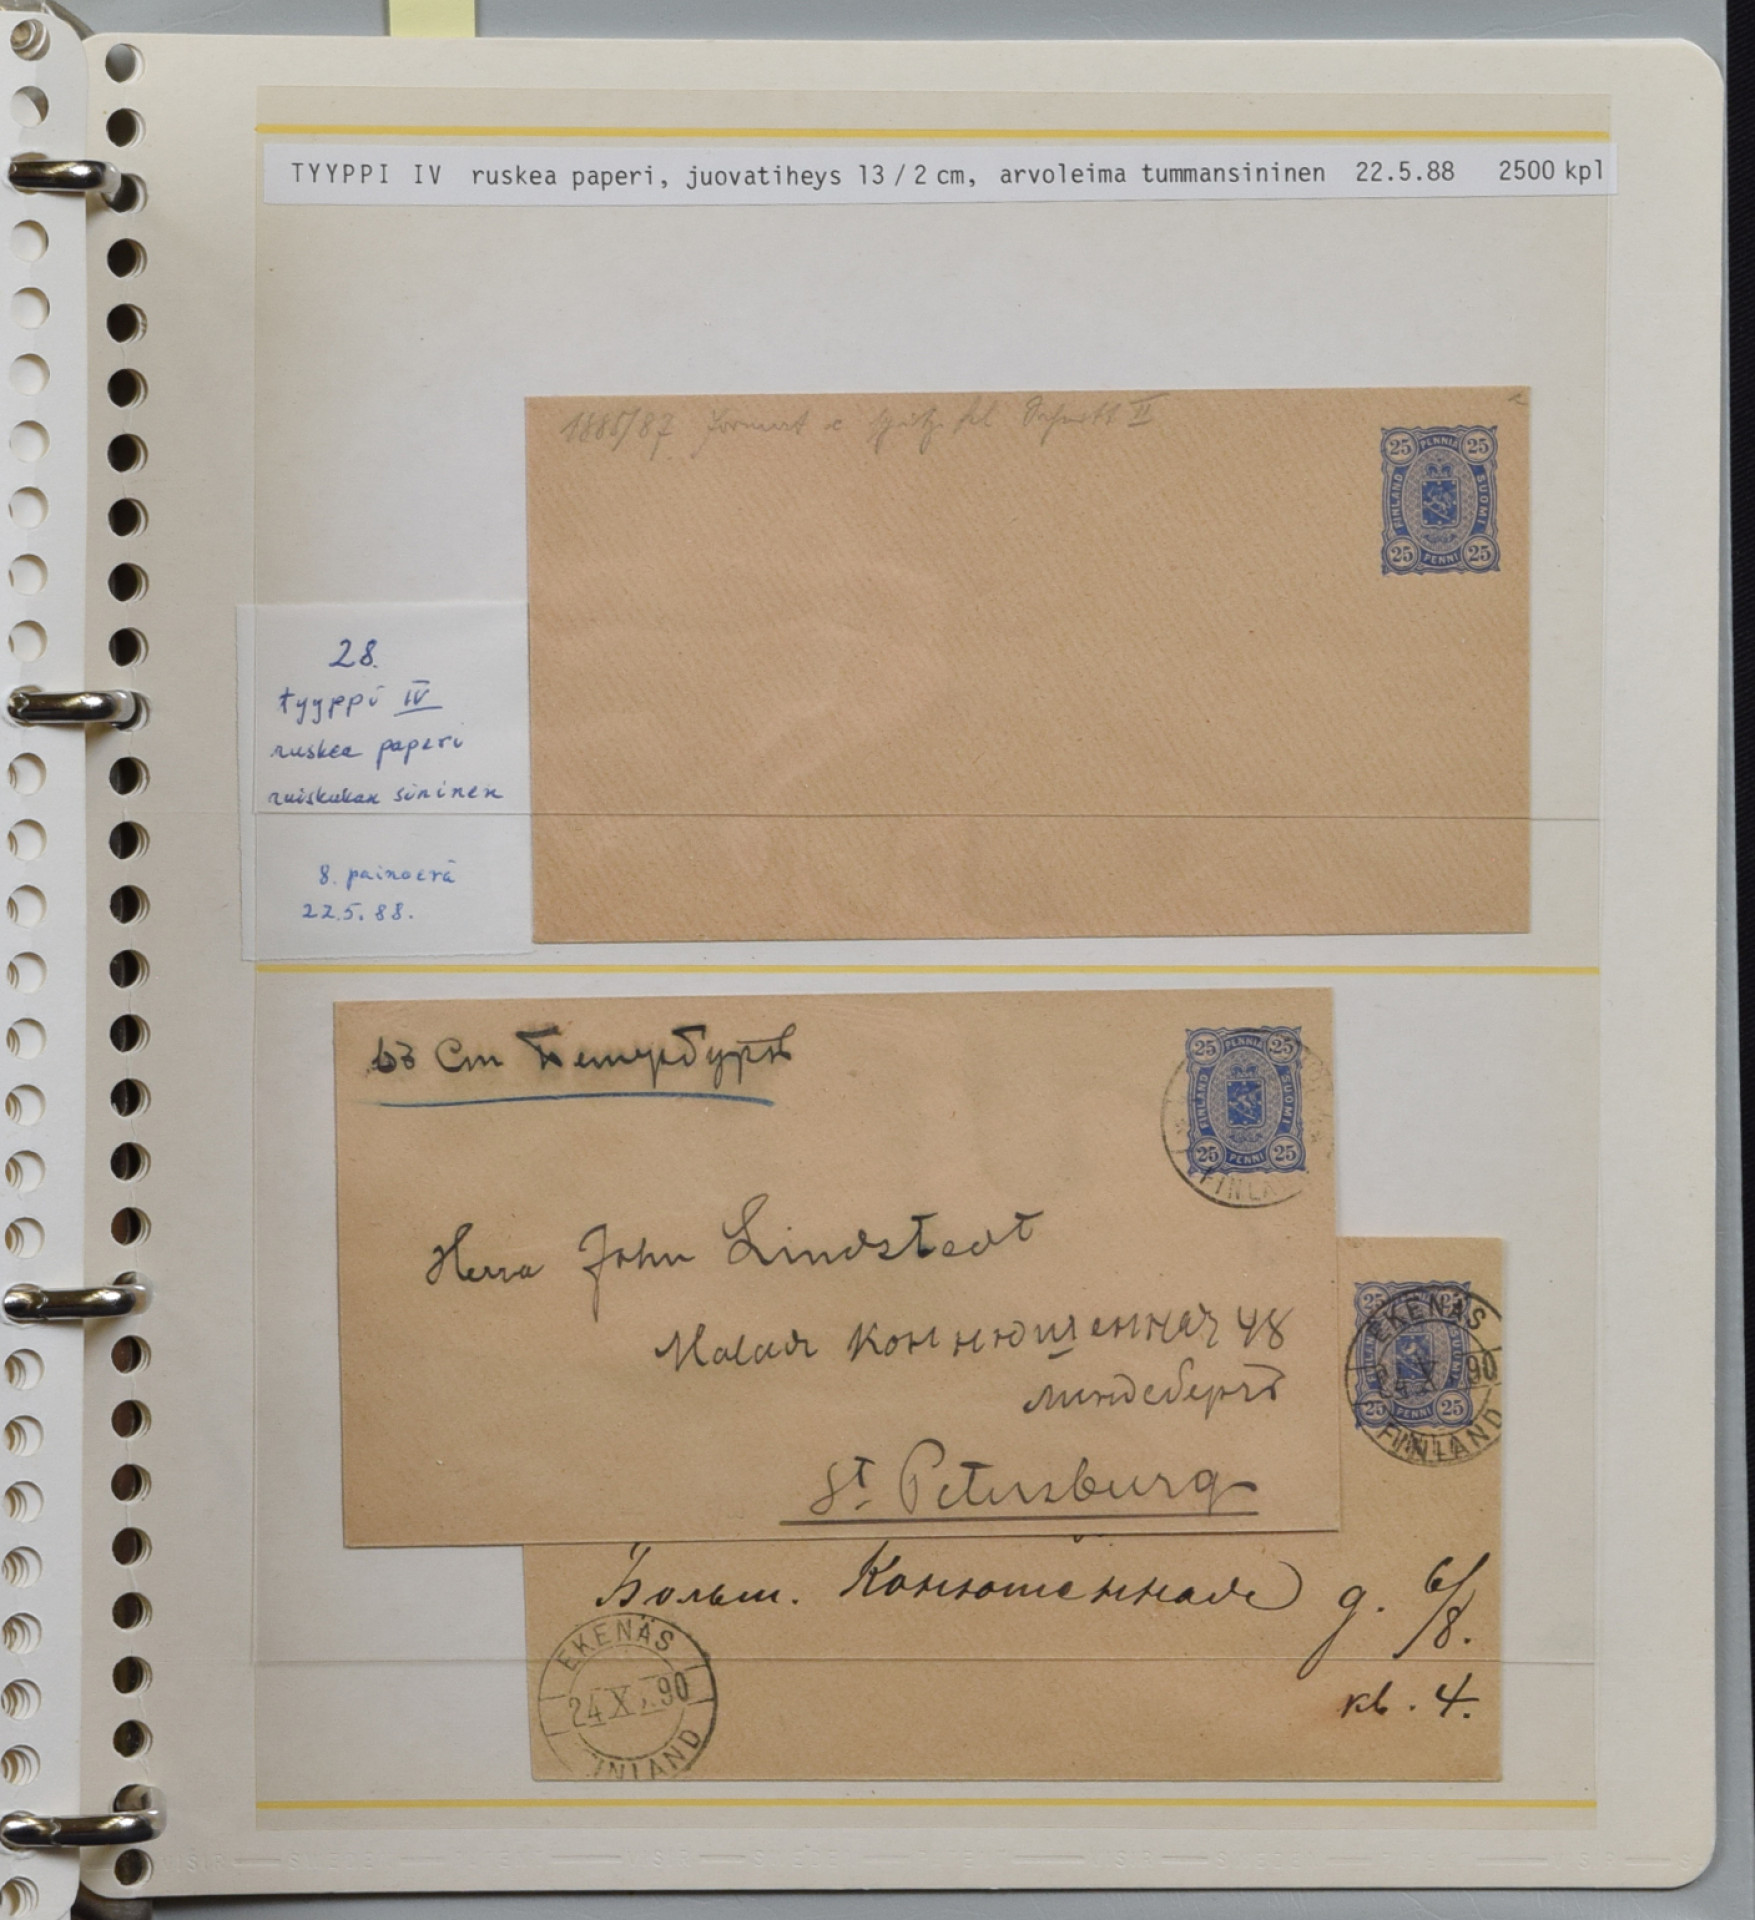 TYYPPI IV ruskea paperi, juovatiheys 13/2 cm, arvoleima tummansininen 22.5.88 2500 kpl
1885/87 Format c Schnitt II
25 PENNIÄ 25
FINLAND SUOMI
25 PENNI 25
28.
tyyppi IV
ruskea paperi
ruiskukan sininen
8. painoerä
22.5.88.
въ Ст Петербургъ
25 PENNIÄ 25
FINLAND SUOMI
25 PENNI 25
FINLA
Herra John Lindstedt
Малая Конюшенная 48
St. Petersburg
25 25
EKENÄS
24 X 90
FINLAND
SUOMI
25 PENNI 25
Больш. Конюшенная д. 6/8.
кв. 4.
EKENÄS
24 X 90
FINLAND